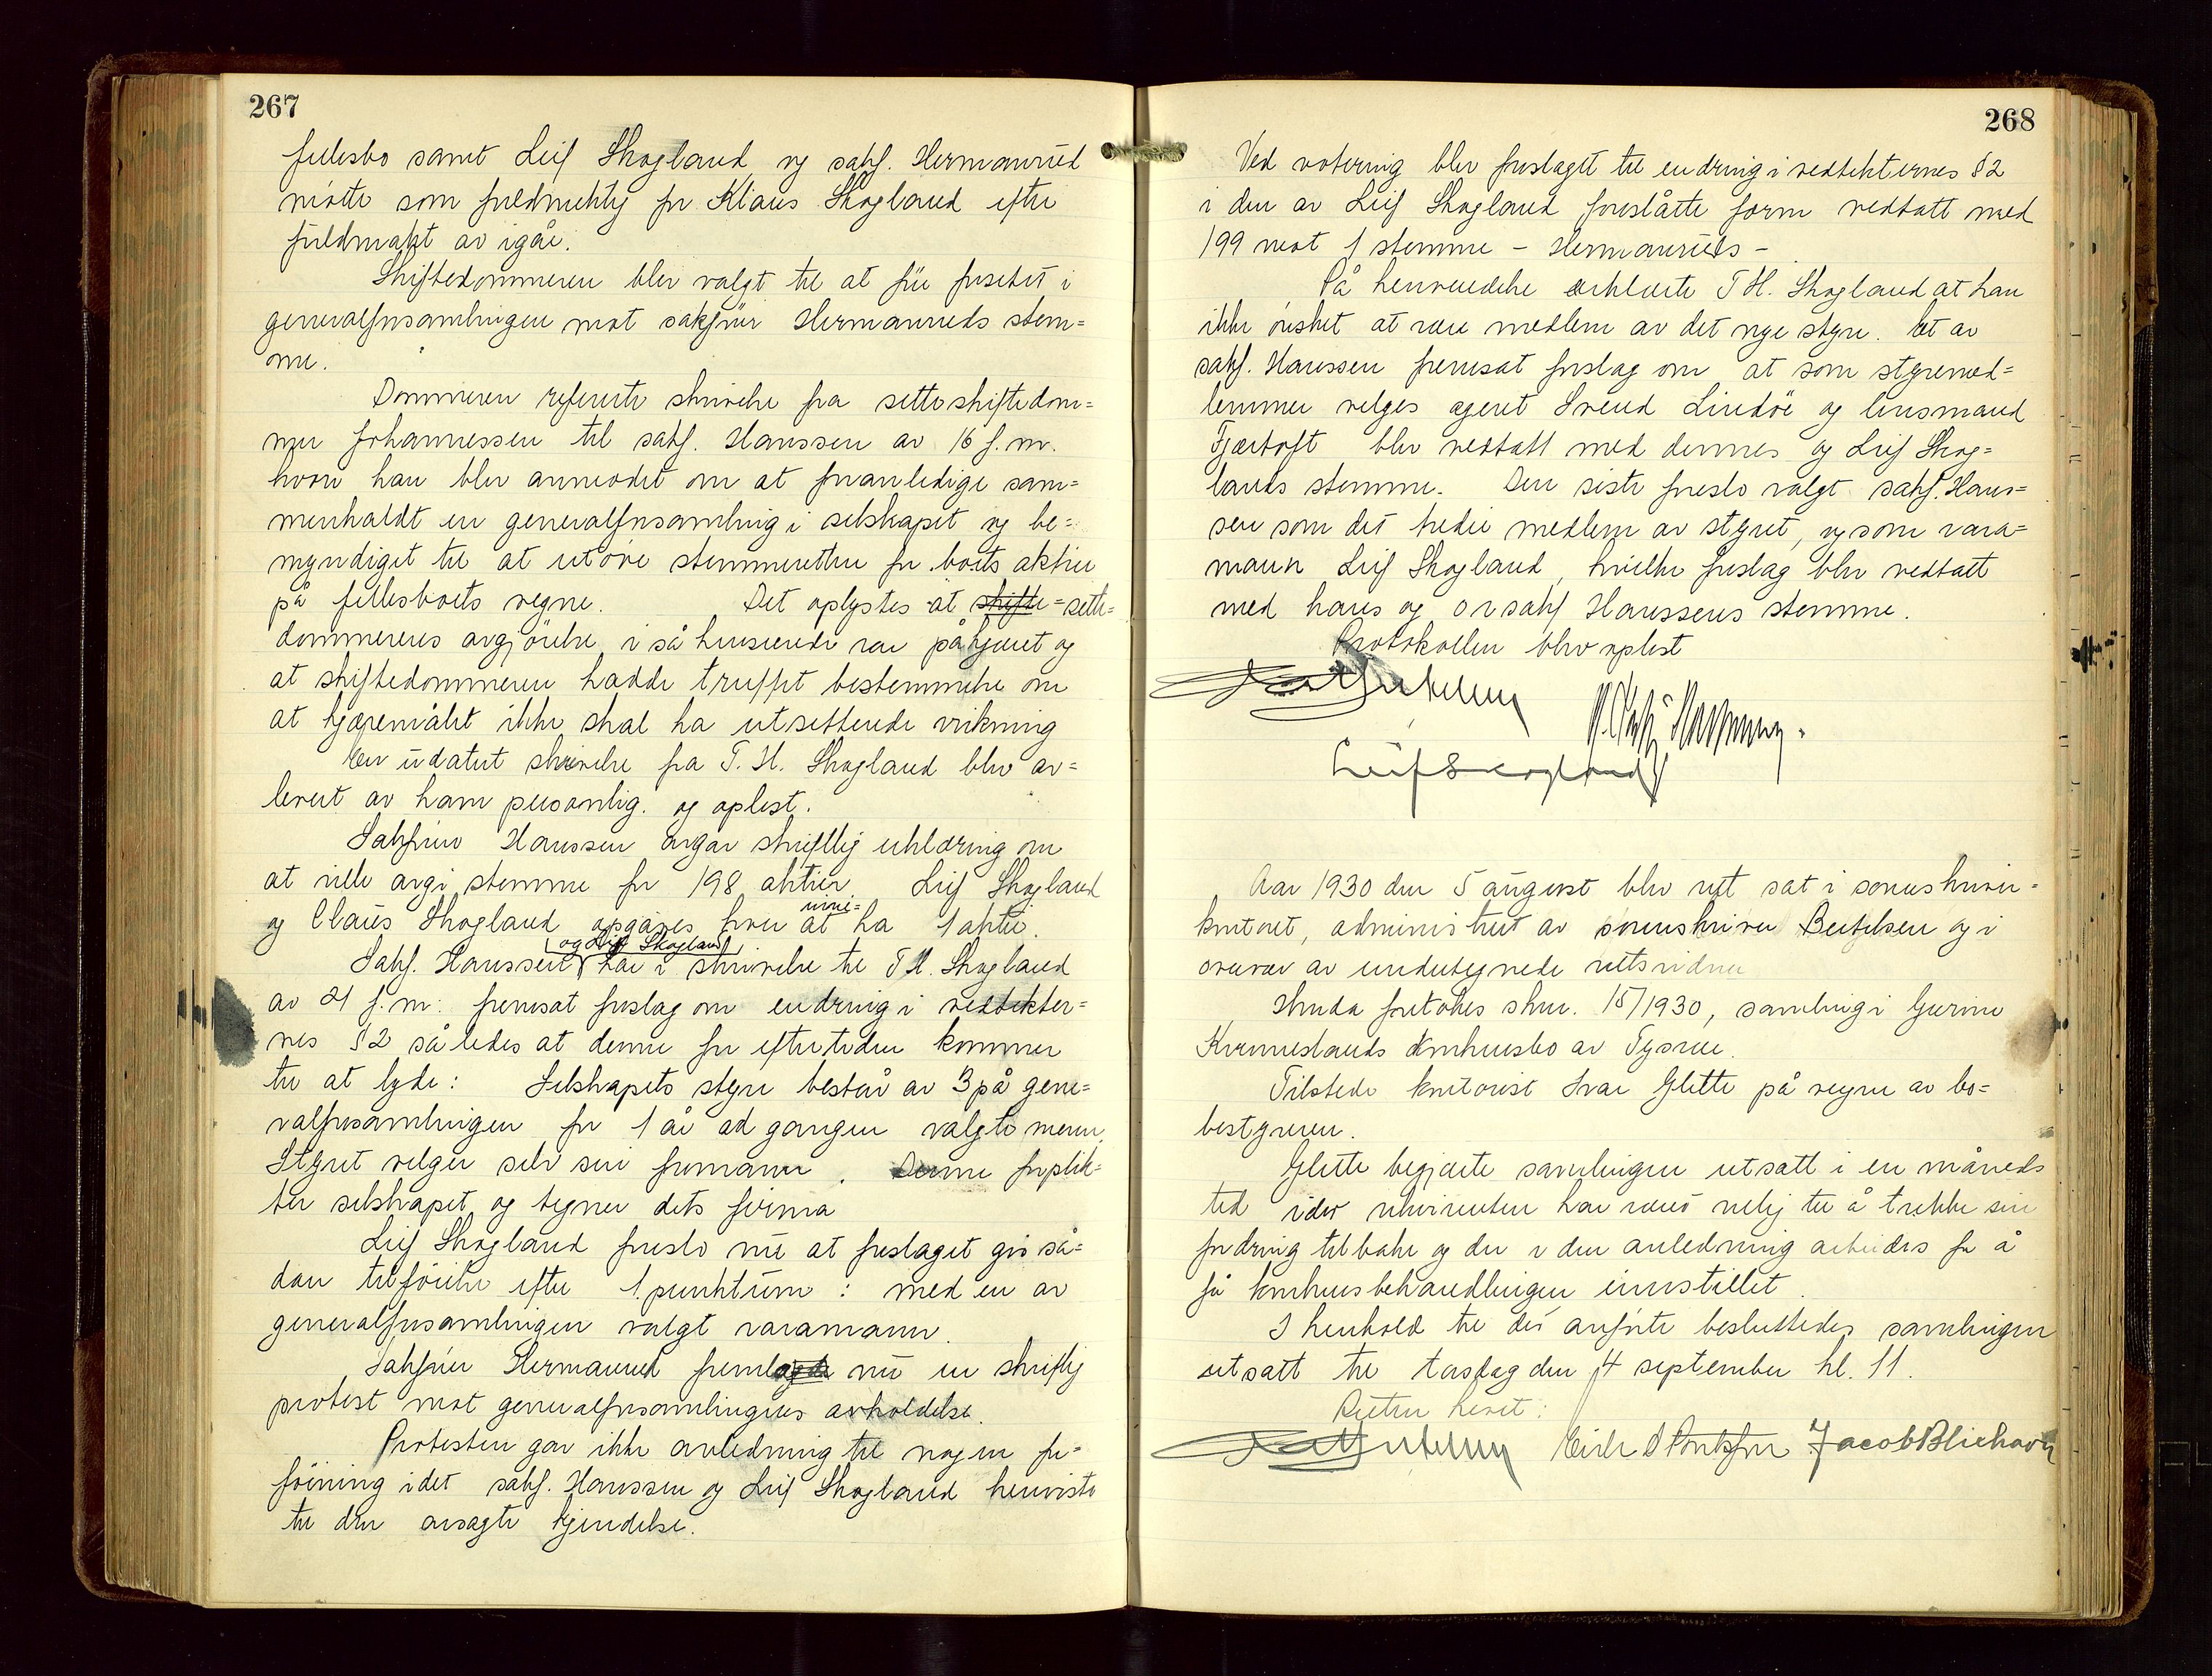 267
fellesbo samt Leif Skogland og sakf. Hermanrud
møtte som fuldmektig for Klaus Skogland efter
fuldmakt av igår.
Skiftedommeren blev valgt til at føre forsetet i
generalforsamlingen mot sakfører Hermanruds stem=
me.
Dommeren refererte skrivelse fra setteskiftedom=
mer Johannessen til sakf. Hanssen av 16 f.m.
hvori han blev anmodet om at foranledige sam=
menkaldt en generalforsamling i selskapet og be=
myndiget til at utøve stemmeretten for boets aktier
på fellesboets vegne. Det oplystes at skifte=sette=
dommerens avgjørelse i så henseende var påkjæret og
at skiftedommeren hadde truffet bestemmelse om
at kjæremålet ikke skal ha utsettende virkning
En udatert skrivelse fra T. H. Skogland blev av=
levert av ham personlig og oplest.
Sakfører Hanssen avgav skriftlig erklæring om
at ville avgi stemme for 198 aktier. Leif Skogland
og Claus Skogland opgaves hver at ha 1 aktie.
og Leif Skogland
Sakf. Hanssen har i skrivelse til T.H. Skogland
av 21 f.m. fremsat forslag om endring i vedtekter=
nes §2 således at denne for eftertiden kommer
til at lyde: Selskapets styre består av 3 på gene=
ralforsamlingen for 1 år ad gangen valgte menn.
Styret velger selv sin formann. Denne forplik=
ter selskapet og tegner dets firma
Leif Skogland foreslo nu at forslaget gis så=
dan tilføielse efter 1. punktum: med en av
generalforsamlingen valgt varamann.
Sakfører Hermanrud fremlagde nu en skriftlig
protest mot generalforsamlingens avholdelse.
Protesten gav ikke anledning til nogen for=
føining idet sakf. Hanssen og Leif Skogland henviste
til den avsagte kjendelse.
268
Ved votering blev forslaget til endring i vedtekternes §2
i den av Leif Skogland foreslåtte form vedtatt med
199 mot 1 stemme - Hermanruds -
På henvendelse erklærte T H. Skogland at han
ikke ønsket at være medlem av det nye styre. Et av
sakf. Hanssen fremsat forslag om at som styremed=
lemmer velges agent Svend Lindøe og lensmand
Fjærtoft blev vedtatt med dennes og Leif Skog=
lands stemme. Den siste foreslo valgt sakf. Hans=
sen som det tredie medlem av styret, og som vara=
mann Leif Skogland, hvilke forslag blev vedtatt
med hans og o r sakf Hanssens stemme.
Protokollen blev oplest
Leif Skogland
Aar 1930 den 5 august blev rett sat i sorenskriver=
kontoret, administrert av sorenskriver Bertelsen og i
overvær av undertegnede rettsvidner
Herunder foretokes skm. 15/1930, samling i Gurine
Kvinneslands konkursbo av Tysvær.
Tilstede kontorist Ivar Glette på vegne av bo=
bestyreren.
Glette begjærte samlingen utsatt i en måneds
tid idet rekvirenten har været villig til å trekke sin
fordring tilbake og der i den anledning arbeides for å
få konkursbehandlingen innstillet.
I henhold til det anførte besluttedes samlingen
utsatt til torsdag den 4 september kl. 11.
Retten hevet:
Jacob Bliehavn